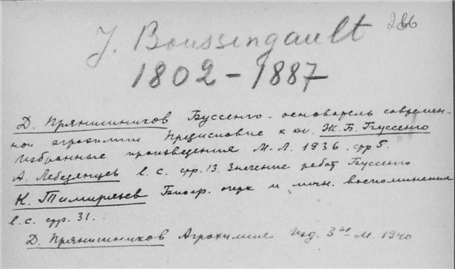 286
J. Boussingault
1802 – 1887
Д. Прянишников Буссенго – основатель современ-
ной агрохимии Предисловие к кн. Ж. Б. Буссенго
Избранные произведения М. Л. 1936. стр 5.
А. Лебедянцев l. c. стр. 13. Значение работ Буссенго
К. Тимирязев Биогр. очерк и личн. воспоминания
l. c. стр. 31.
Д. Прянишников Агрохимия Изд. 3ье М. 1940